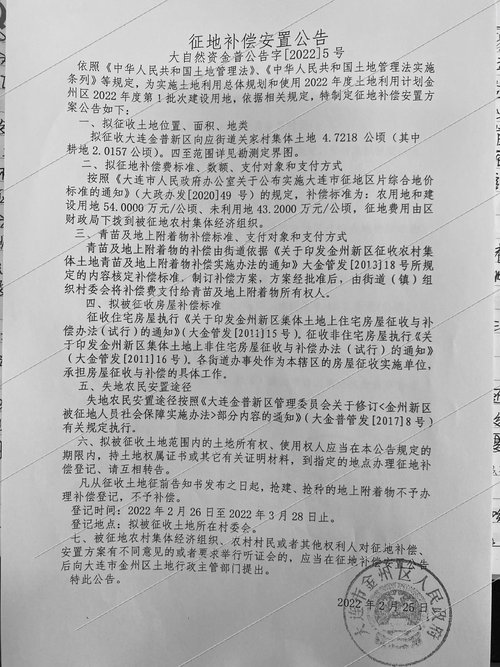 征地补偿安置公告
大自然资金普公告字[2022]5号
依照《中华人民共和国土地管理法》、《中华人民共和国土地管理法实施
条列》等规定，为实施土地利用总体规划和使用2022年度土地利用计划金
州区2022年度第1批次建设用地，依据相关规定，特制定征地补偿安置方
案公告如下：
一、拟征收土地位置、面积、地类
拟征收大连金普新区向应街道关家村集体土地4.7218公顷（其中
耕地2.0157公顷）。四至范围详见勘测定界图。
二、拟征地补偿费标准、数额、支付对象和支付方式
按照《大连市人民政府办公室关于公布实施大连市征地区片综合地价
标准的通知》（大政办发[2020]49号）的规定，补偿标准为：农用地和建
设用地54.0000万元/公顷、未利用地43.2000万元/公顷，征地费用由区
财政局下拨到被征地农村集体经济组织。
三、青苗及地上附着物补偿标准、支付对象和支付方式
青苗及地上附着物的补偿由街道依据《关于印发金州新区征收农村集
体土地青苗及地上附着物补偿实施办法的通知》大金管发[2013]18号所规
定的内容核定补偿标准，制订补偿方案，方案经批准后，由街道（镇）组
织村委会将补偿费支付给青苗及地上附着物所有权人。
四、拟被征收房屋补偿标准
征收住宅房屋执行《关于印发金州新区集体土地上住宅房屋征收与补
偿办法（试行）的通知》（大金管发[2011]15号）。征收非住宅房屋执行《关
于印发金州新区集体土地上非住宅房屋征收与补偿办法（试行）的通知》
（大金管发[2011]16号）。各街道办事处作为本辖区的房屋征收实施单位，
承担房屋征收与补偿的具体工作。
五、失地农民安置途径
失地农民安置途径按照《大连金普新区管理委员会关于修订<金州新区
被征地人员社会保障实施办法>部分内容的通知》（大金普管发[2017]8号）
有关规定执行。
六、拟被征收土地范围内的土地所有权、使用权人应当在本公告规定的
期限内，持土地权属证书或其它有关证明材料，到指定的地点办理征地补
偿登记、请互相转告。
凡从征收土地征前告知书发布之日起，抢建、抢种的地上附着物不予办
理补偿登记，不予补偿。
登记时间：2022年2月26日至2022年3月28日止。
登记地点：拟被征收土地所在村委会。
七、被征地农村集体经济组织、农村村民或者其他权利人对征地补偿、
安置方案有不同意见的或者要求举行听证会的，应当在征地补偿安置公告
后向大连市金州区土地行政主管部门提出。
特此公告。
2022年2月25日
大连市金州区人民政府